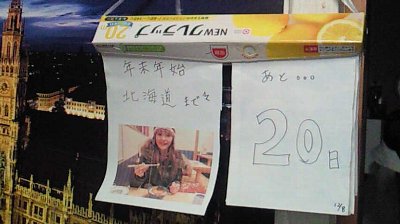 NEWクレラップ
20
年末年始
北海道まで
あと...
20日